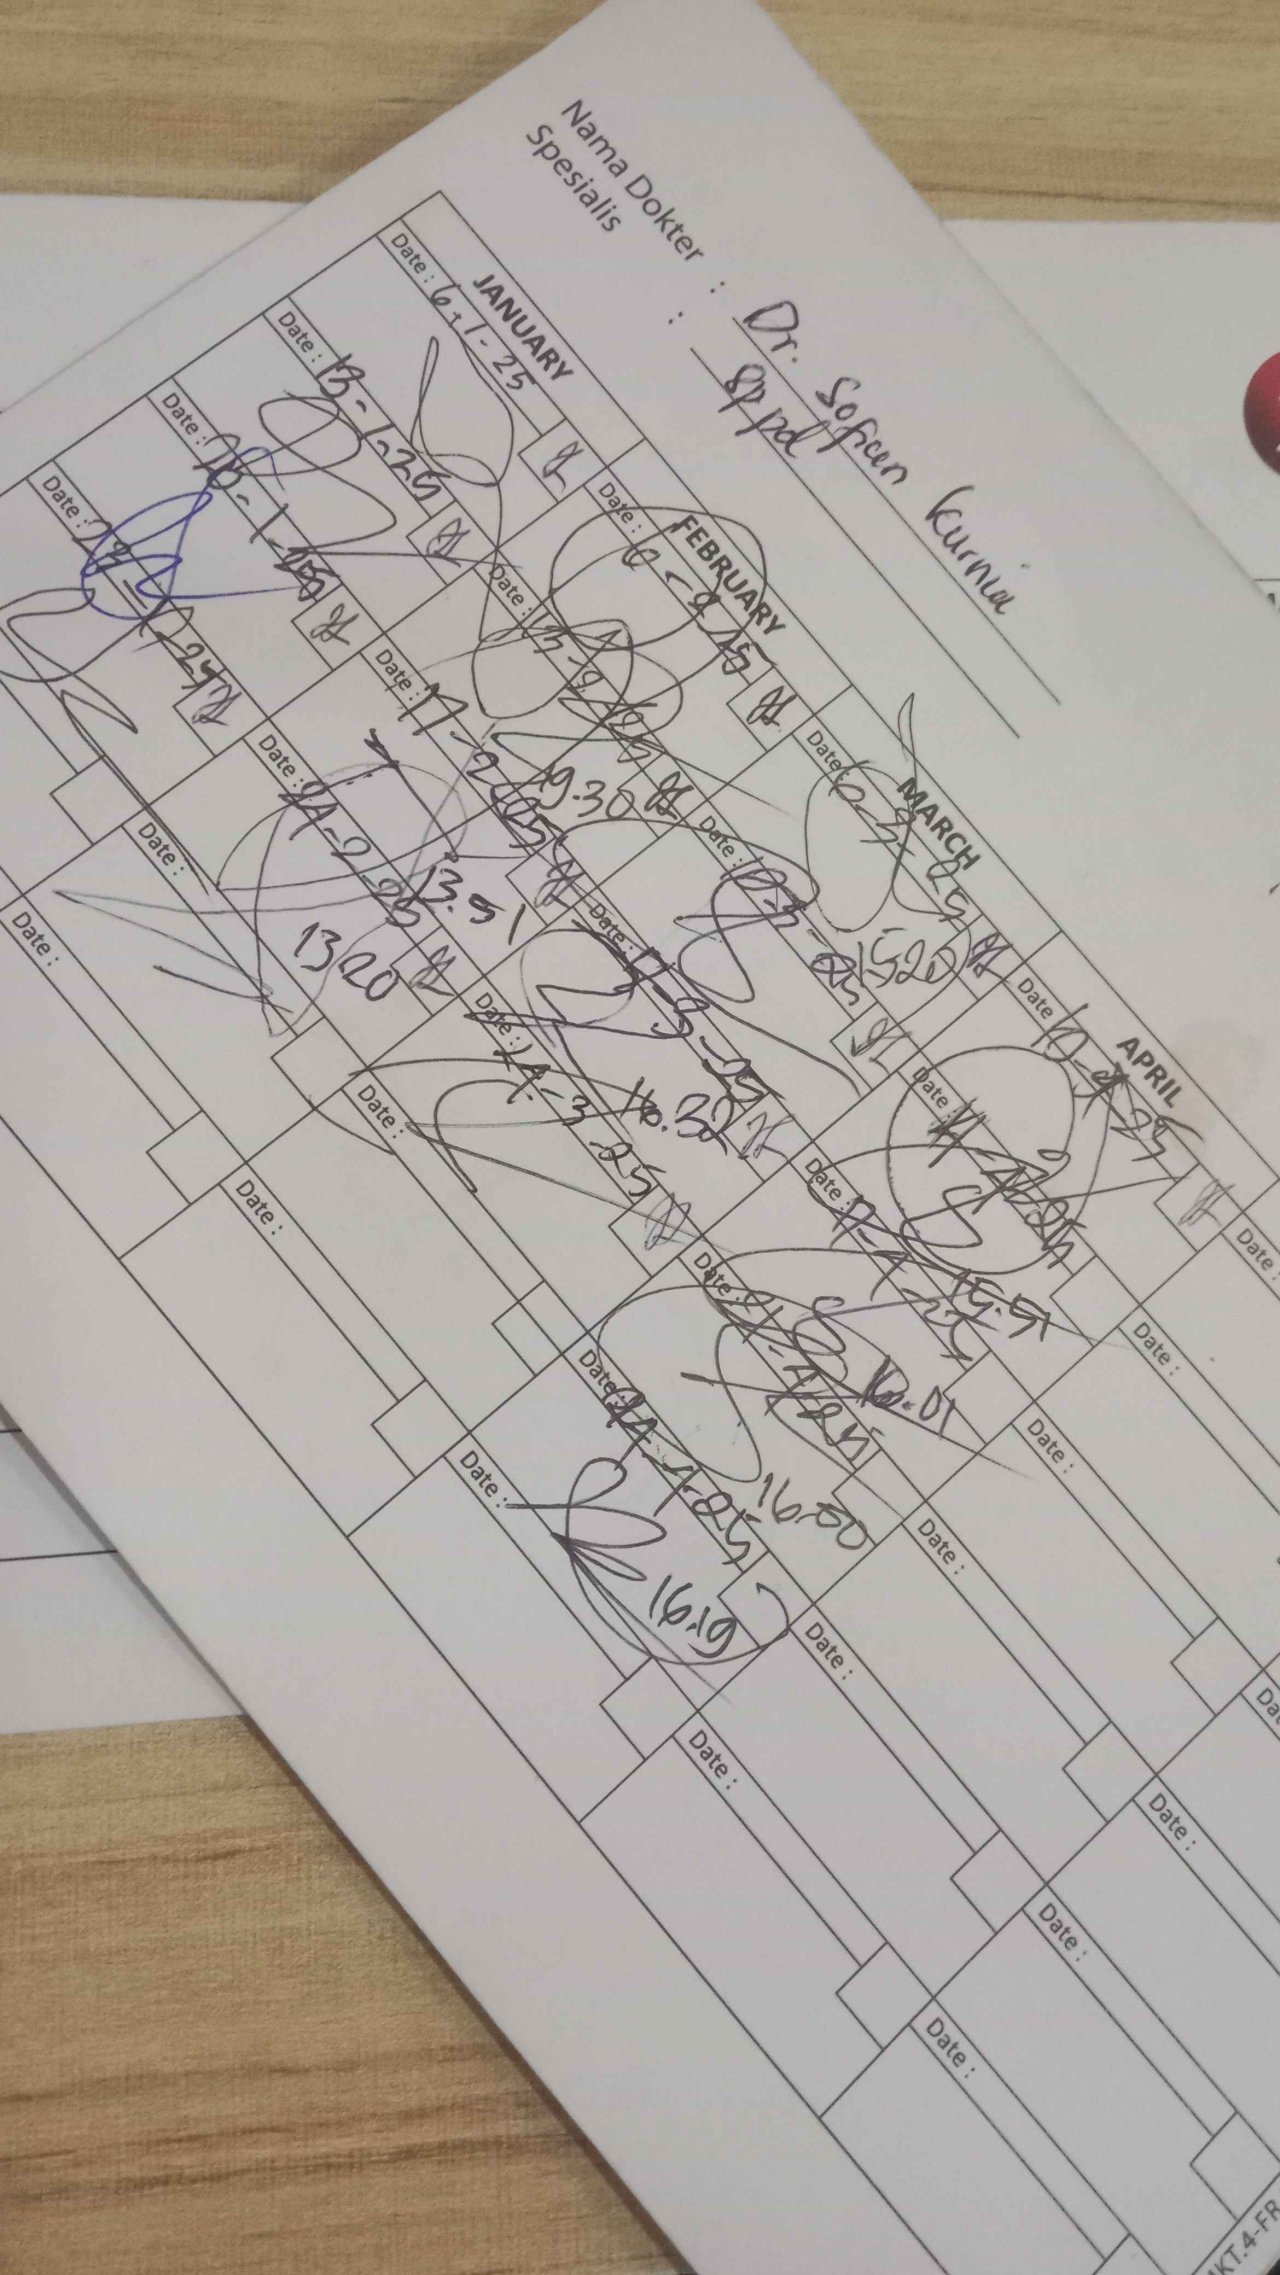 Nama Dokter : Dr. Soficen Kurnia
Spesialis : Sp pd
JANUARY
Date : 6-1-25
Date : 13-1-25
Date : 20-1-25
Date :
Date :
FEBRUARY
Date : 6-2-25
Date : 13-2-25
19.30
Date : 17-2-25
13.51
Date : 24-2-25
13.20
Date :
Date :
MARCH
Date : 6-3-25
15.20
Date : 10-3-25
Date : 17-3-25
16.32
Date : 24-3-25
Date :
Date :
APRIL
Date : 10-4-25
Date : 14-4-25
15.51
Date : 17-4-25
16.01
Date : 21-4-25
16.00
Date : 24-4-25
16.19
Date :
Date :
Date :
Date :
Date :
Date :
Date :
Date :
Date :
Date :
MKT.4-FR